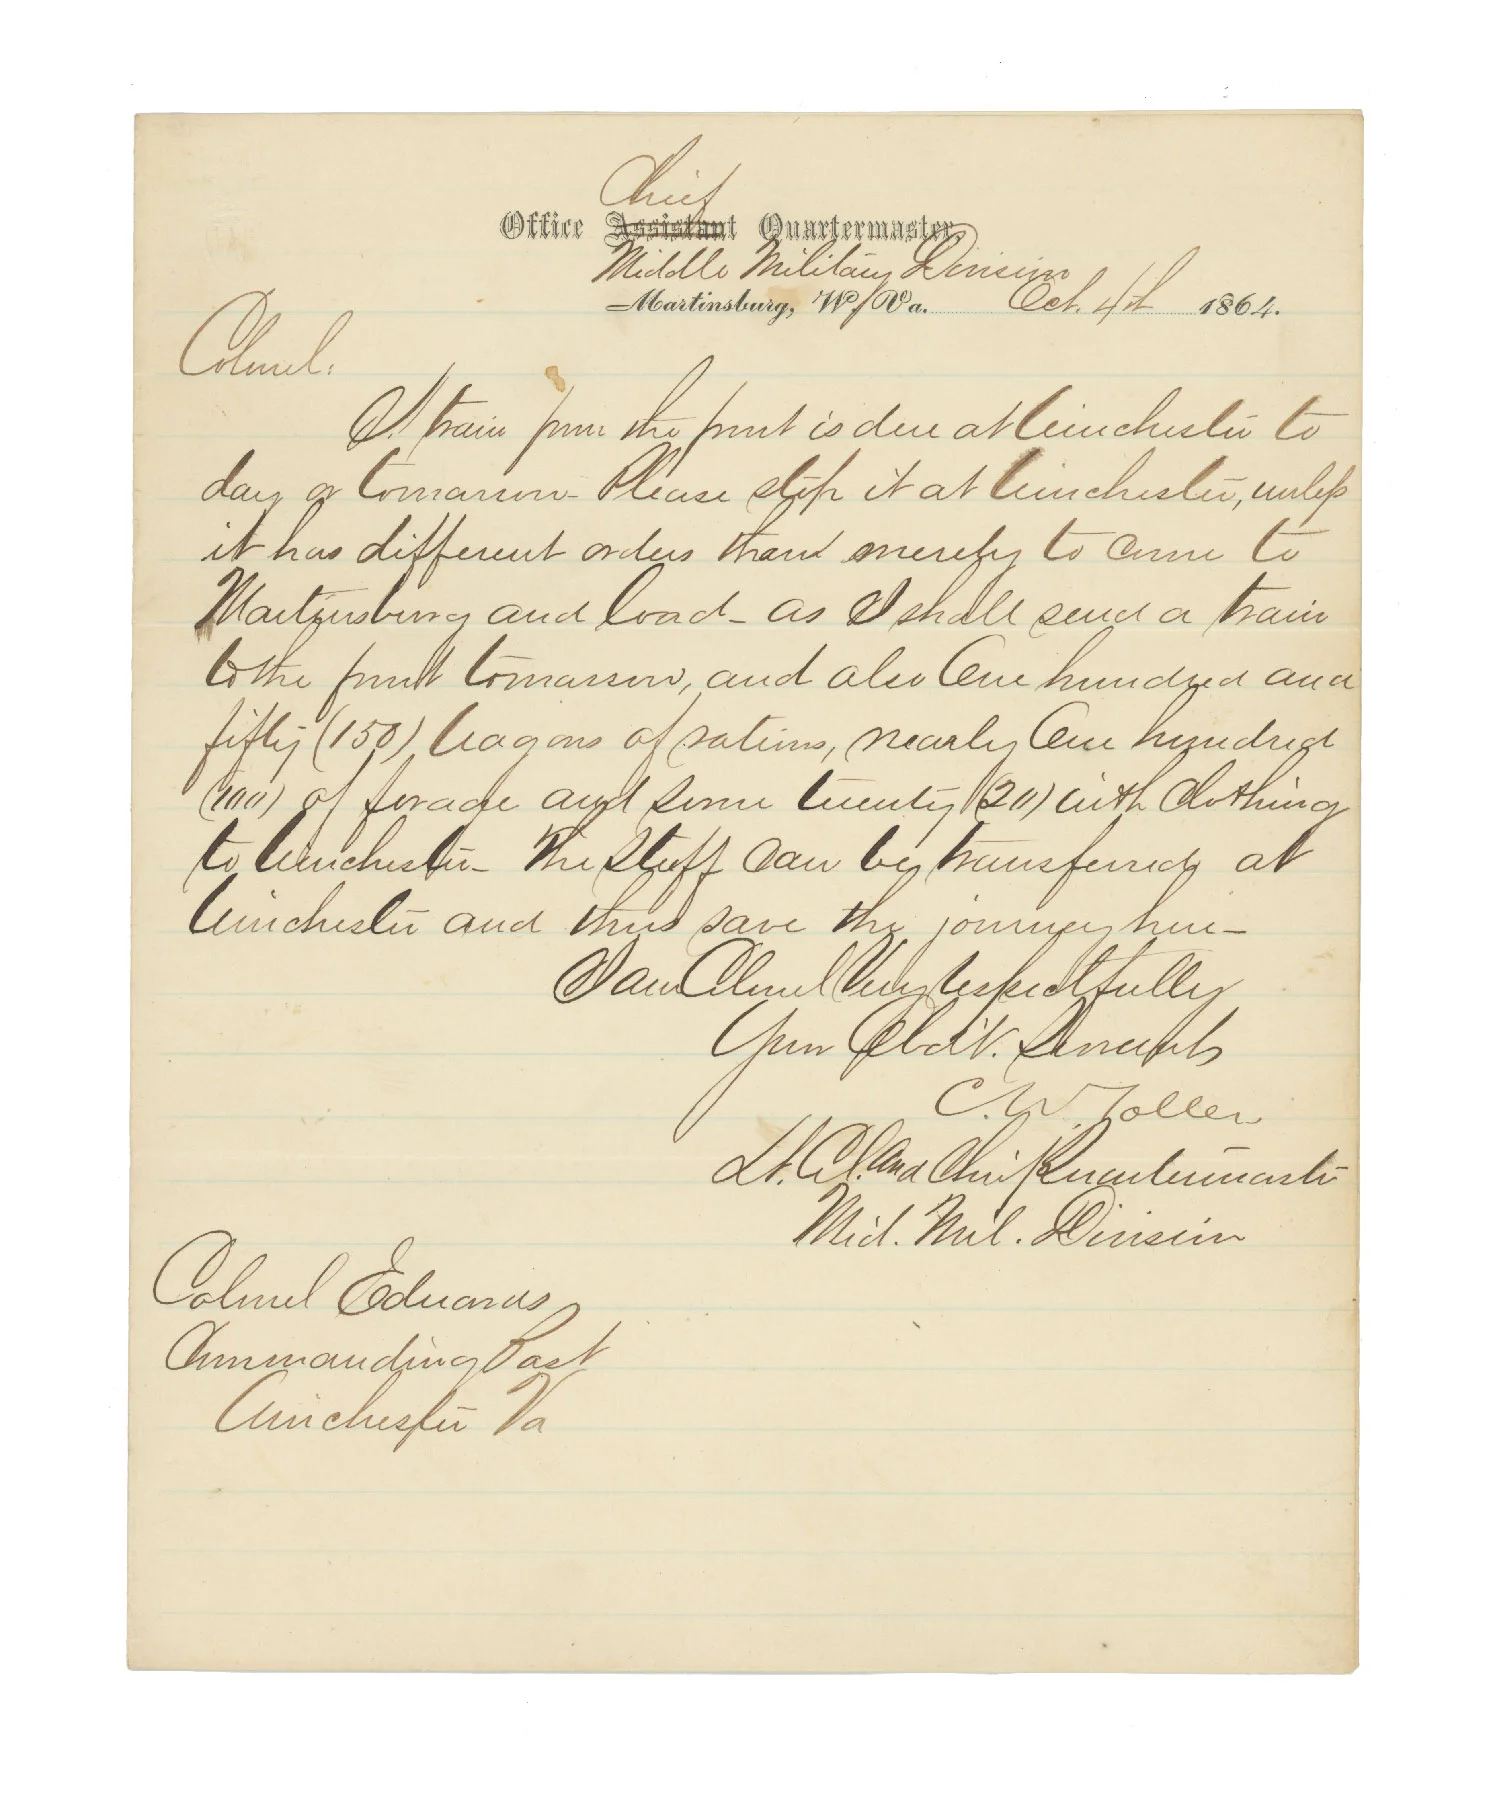 Chief
Office Assistant Quartermaster,
Middle Military Division
Martinsburg, W. Va. Oct. 4th 1864.
Colonel:
A train from the front is due at Winchester to
day or tomorrow - Please stop it at Winchester, unless
it has different orders than merely to come to
Martinsburg and load - as I shall send a train
to the front tomorrow, and also One hundred and
fifty (150) wagons of rations, nearly One hundred
(100) of forage and some twenty (20) with Clothing
to Winchester - The stuff can be transferred at
Winchester and thus save the journey here -
I am Colonel Very respectfully
Your Obdt. Servant
C. W. Tolles
Lt. Col. and Chief Quartermaster
Mid. Mil. Division
Colonel Edwards
Commanding Post
Winchester Va